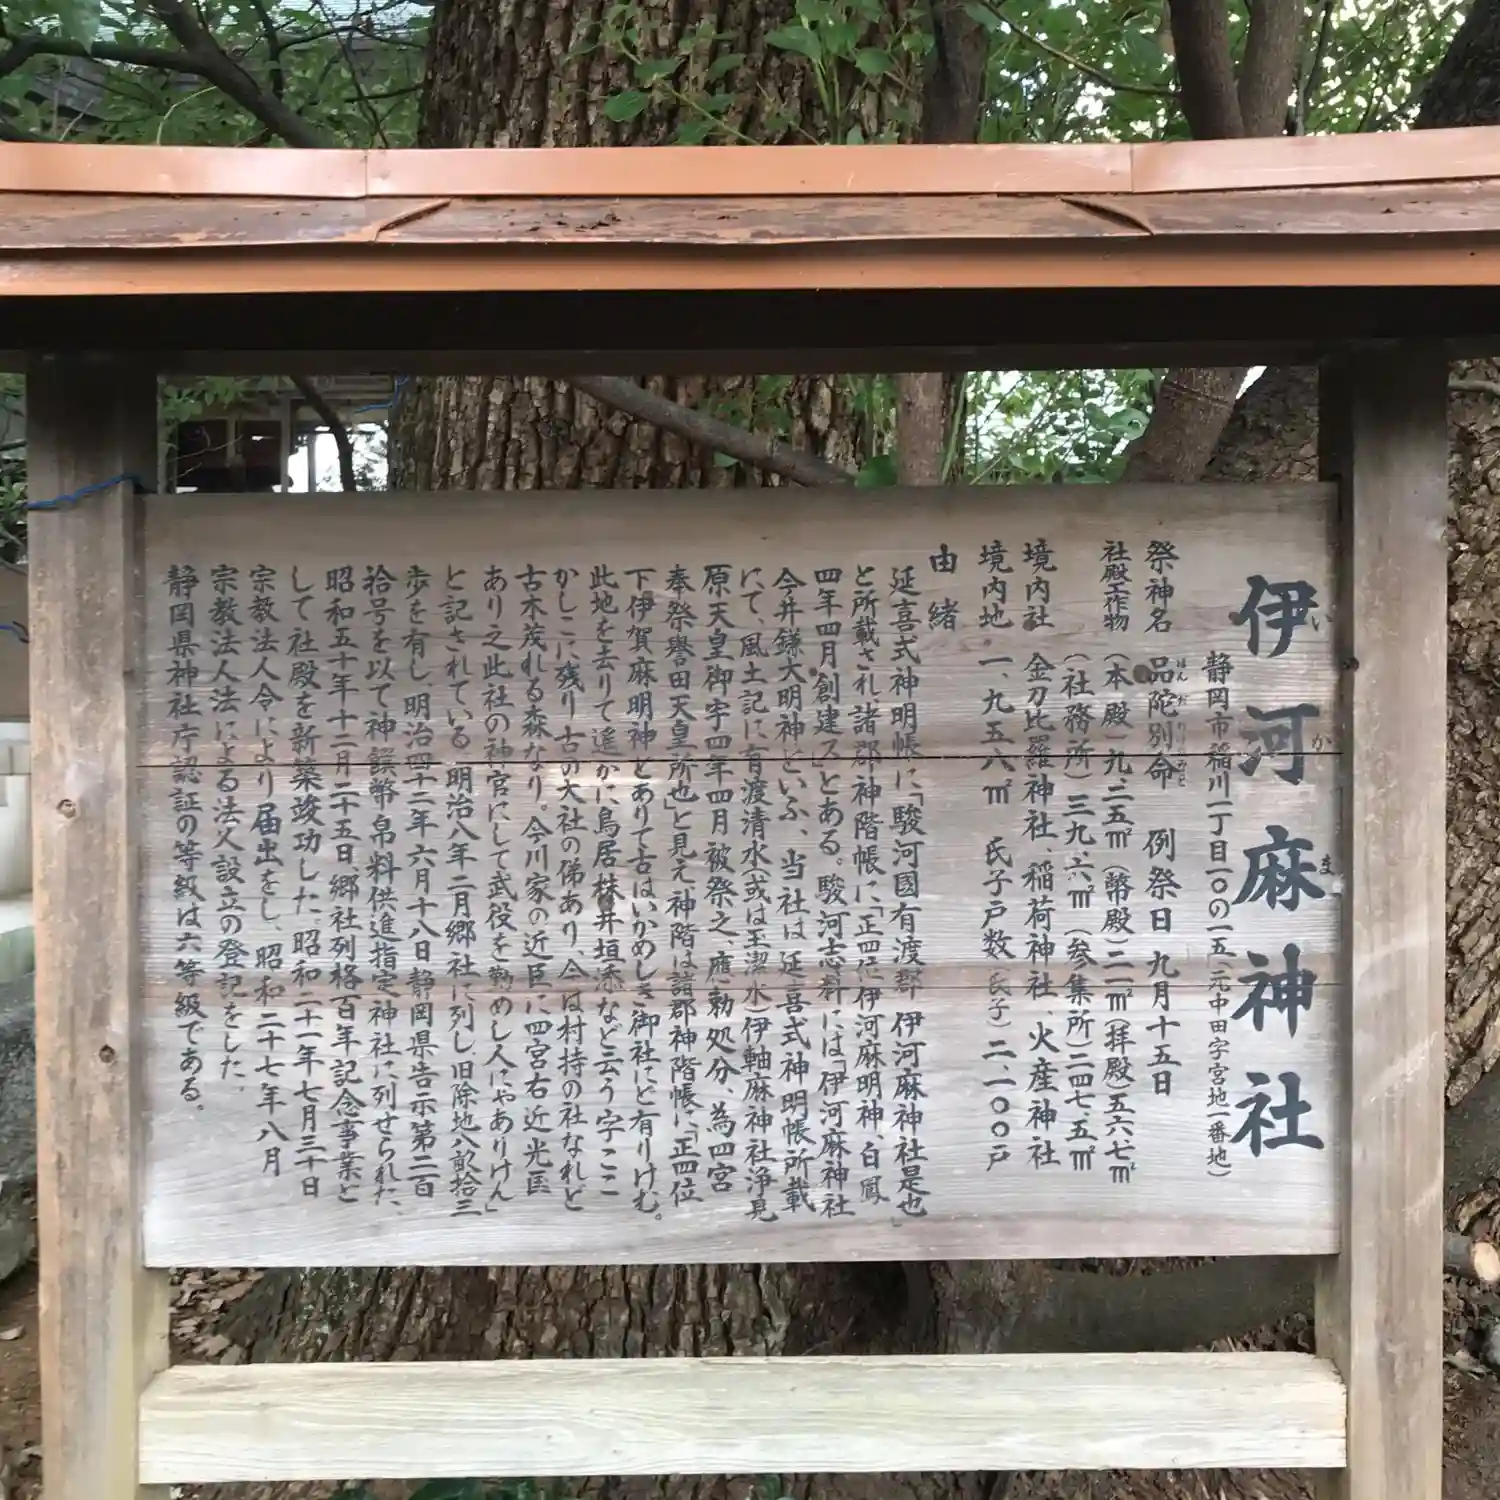 伊河麻神社
いかま
静岡市稲川一丁目一〇の一五(元中田字宮地一番地)
祭神名 品陀別命 例祭日 九月十五日
ほんだわけのみこと
社殿工作物 (本殿)九・二五㎡(幣殿)二一㎡(拝殿)五六・七㎡
(社務所)三九・六㎡(参集所)二四七・五㎡
境内社 金刀比羅神社、稲荷神社、火産神社
境内地 一、九五六㎡ 氏子戸数(氏子)二、一〇〇戸
由緒
延喜式神明帳に「駿河國有渡郡伊河麻神社是也」
と所載され諸郡神階帳に「正四位伊河麻明神、白鳳
四年四月創建ス」とある。駿河志料には「伊河麻神社
今井鎌大明神といふ、当社は延喜式神明帳所載
にて、風土記に有渡清水(或は玉潔水)伊軸麻神社浄見
原天皇御宇四年四月被祭之、應勅処分、為四宮
奉祭譽田天皇所也」と見え神階は諸郡神階帳に「正四位
下伊賀麻明神とありて古はいかめしき御社にど有りけむ。
此地を去りて遙かに鳥居株井垣添など云う字ここ
かしこに残り古の大社の俤あり、今は村持の社なれど
古木茂れる森なり。今川家の近臣に四宮右近光匡
あり之此社の神官にして武役を勤めし人にやありけん」
と記されている。明治八年二月郷社に列し、旧除地八畝拾三
歩を有し、明治四十二年六月十八日静岡県告示第二百
拾号を以て神饌幣帛料供進指定神社に列せられた
昭和五十年十二月二十五日、郷社列格百年記念事業と
して社殿を新築竣功した、昭和二十一年七月三十日
宗教法人令により届出をし、昭和二十七年八月
宗教法人法による法人設立の登記をした、
静岡県神社庁認証の等級は六等級である。